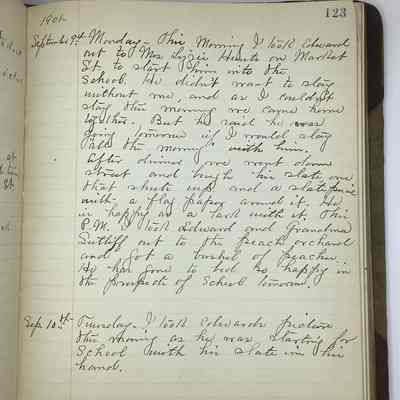 123
1901
September 9th Monday - This Morning I took Edward
out to Mrs Lizzie Hunts on Market
St to start him into the
School. He didn't want to stay
without me and as I couldn't
stay this morning we came home
together. But he said he was
going tomorrow if I would stay
"all the morning" with him.
After dinner we went down
street and bought his slate, one
that shuts up and a slate pencil
with a flag paper around it. He
is happy as a lark with it. This
P.M. I took Edward and Grandma
Sutliff out to the Peach orchard
and got a bushel of peaches.
He has gone to bed so happy in
the prospects of School tomorrow.
Sep 10th Tuesday - I took Edwards picture
this morning as he was starting for
School with his slate in his
hand.